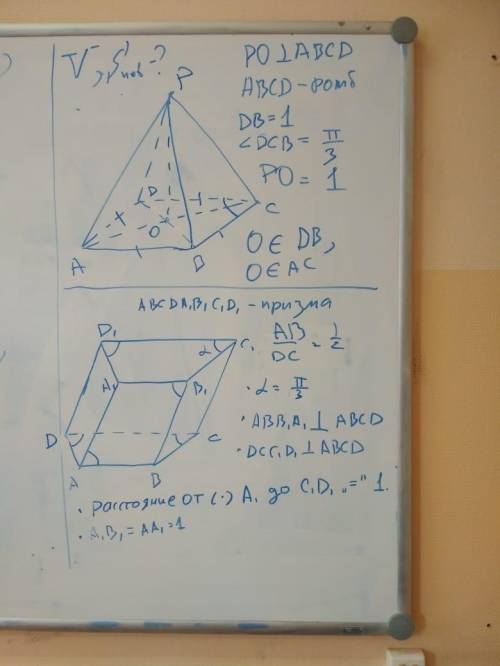 V, Sпов ?
PO ⊥ ABCD
ABCD – ромб
DB = 1
∠DCB = π/3
PO = 1
O ∈ DB,
O ∈ AC
P
D
C
O
A
B
ABCDA₁B₁C₁D₁ – призма
AB/DC = 1/2
· α = π/3
· ABB₁A₁ ⊥ ABCD
· DCC₁D₁ ⊥ ABCD
D₁
α
C₁
A₁
B₁
D
C
A
B
· Расстояние от (·) A₁ до C₁D₁ „=" 1.
· A₁B₁ = AA₁ = 1